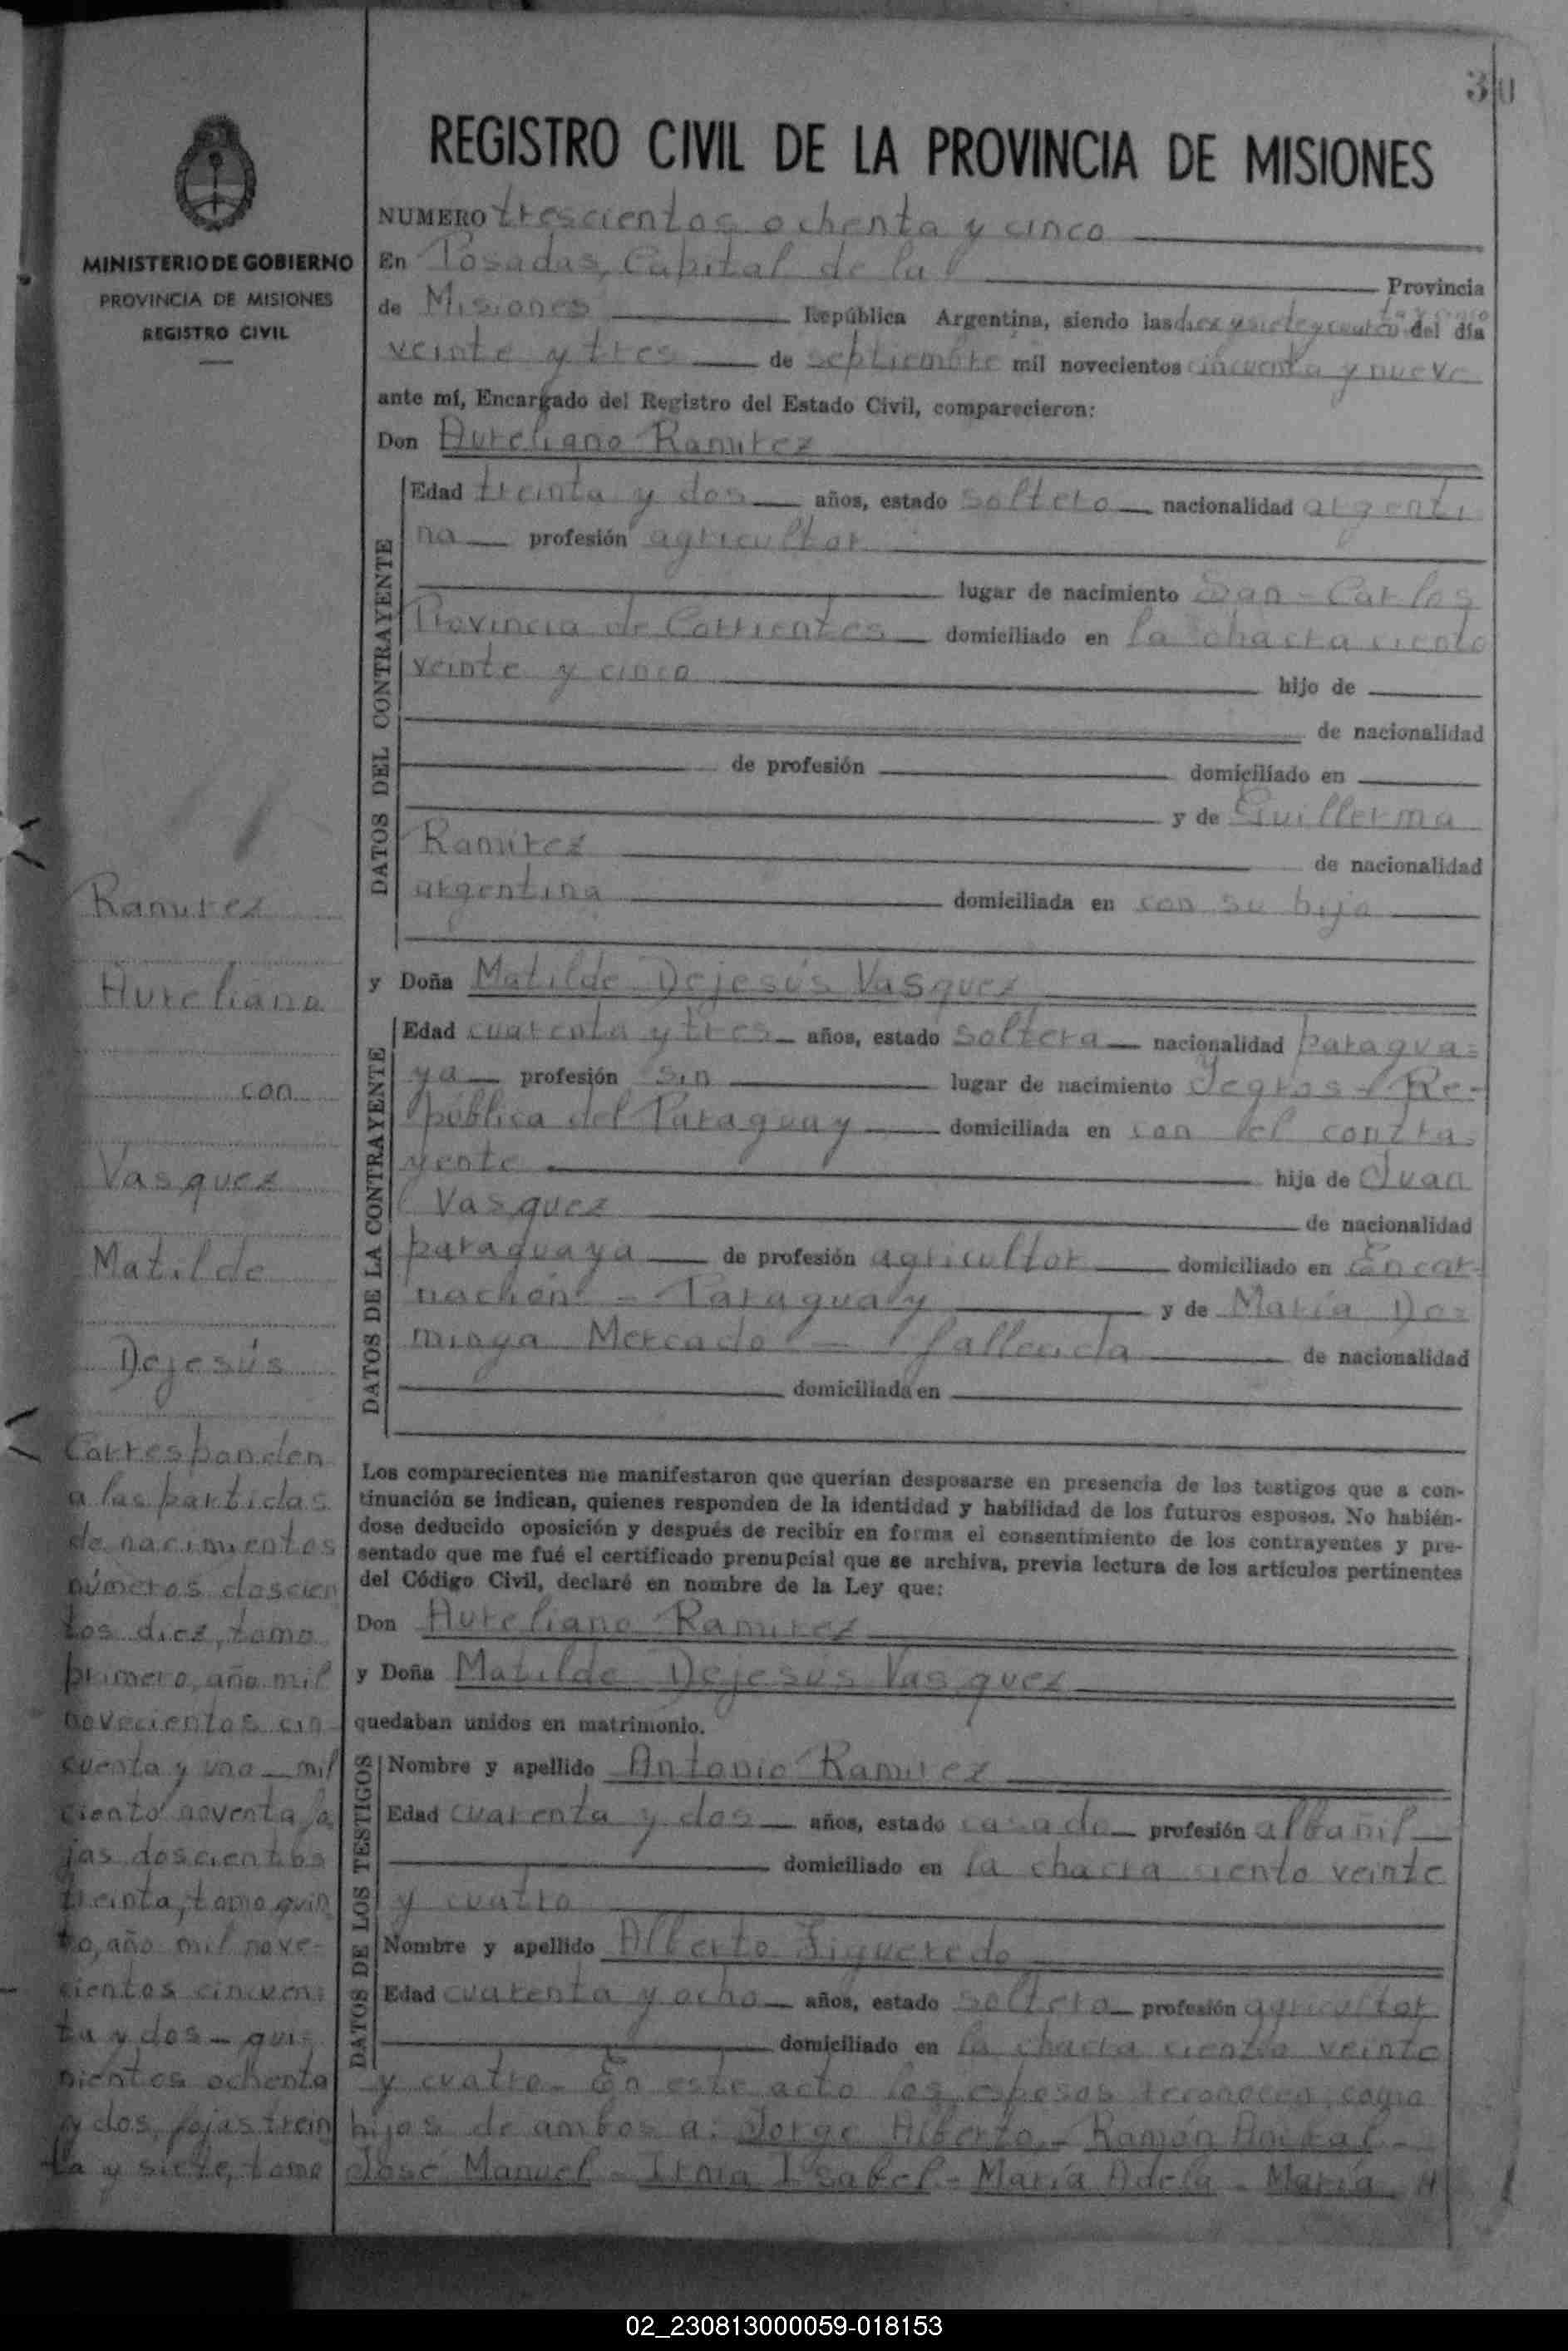 30
REGISTRO CIVIL DE LA PROVINCIA DE MISIONES
MINISTERIO DE GOBIERNO
PROVINCIA DE MISIONES
REGISTRO CIVIL
NUMERO trescientos ochenta y cinco
En Posadas, Capital de la Provincia
de Misiones República Argentina, siendo las diez y siete y cuaren
ta y cinco del día
veinte y tres de septiembre mil novecientos cincuenta y nueve
ante mí, Encargado del Registro del Estado Civil, comparecieron:
Don Aureliano Ramirez
DATOS DEL CONTRAYENTE
Edad treinta y dos años, estado soltero nacionalidad argenti
na profesión agricultor
lugar de nacimiento San Carlos
Provincia de Corrientes domiciliado en la chacra ciento
veinte y cinco hijo de
de nacionalidad
de profesión domiciliado en
y de Guillerma
Ramirez de nacionalidad
argentina domiciliada en con su hijo
y Doña Matilde Dejesús Vasquez
DATOS DE LA CONTRAYENTE
Edad cuarenta y tres años, estado soltera nacionalidad paragua=
ya profesión sin lugar de nacimiento Yegros - Re-
pública del Paraguay domiciliada en con el contra=
yente hija de Juan
Vasquez de nacionalidad
paraguaya de profesión agricultor domiciliado en Encar-
nación - Paraguay y de María Do=
minga Mercado - fallecida de nacionalidad
domiciliada en
Los comparecientes me manifestaron que querían desposarse en presencia de los testigos que a con-
tinuación se indican, quienes responden de la identidad y habilidad de los futuros esposos. No habién-
dose deducido oposición y después de recibir en forma el consentimiento de los contrayentes y pre-
sentado que me fué el certificado prenupcial que se archiva, previa lectura de los artículos pertinentes
del Código Civil, declaré en nombre de la Ley que:
Don Aureliano Ramirez
y Doña Matilde Dejesús Vasquez
quedaban unidos en matrimonio.
DATOS DE LOS TESTIGOS
Nombre y apellido Antonio Ramirez
Edad cuarenta y dos años, estado casado profesión albañil
domiciliado en la chacra ciento veinte
y cuatro
Nombre y apellido Alberto Figueredo
Edad cuarenta y ocho años, estado soltero profesión agricultor
domiciliado en la chacra ciento veinte
y cuatro. En este acto los esposos reconocen como
hijos de ambos a: Jorge Alberto - Ramón Anibal -
José Manuel - Irma Isabel - María Adela - María
Ramirez
Aureliano
con
Vasquez
Matilde
Dejesús
Corresponden
a las partidas
de nacimientos
números doscien
tos diez, tomo
primero, año mil
novecientos cin-
cuenta y uno - mil
ciento noventa, fo
jas doscientos
treinta, tomo quin
to, año mil nove-
cientos cincuen=
ta y dos - qui=
nientos ochenta
y dos, fojas trein
ta y siete, tomo
02_230813000059-018153